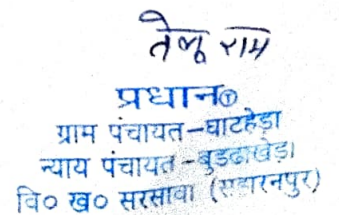 तेलू राम
प्रधान
ग्राम पंचायत-घाटहेड़ा
न्याय पंचायत-बुडढाखेड़ा
वि० ख० सरसावा (सहारनपुर)